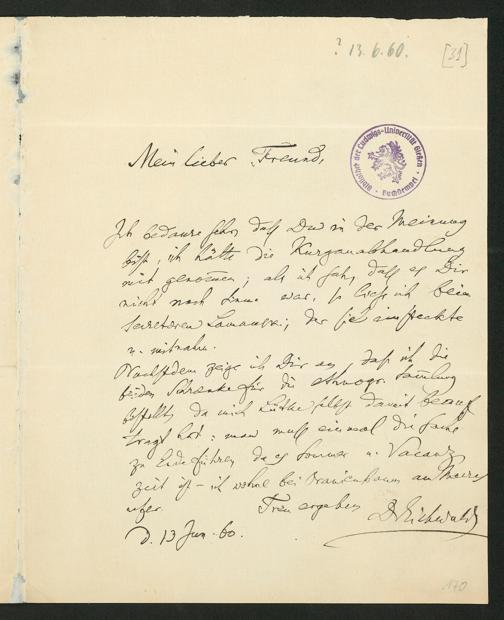 ? 13.6.60.
[31]
Bibliothek der Ludwigs-Universität Gießen
Buchstempel
Mein lieber Freund,
Ich bedaure sehr, daß Du in der Meinung
bist, ich hätte die Kurganabhandlung
mit genommen; als ich sah, daß es Dir
nicht nach Sinne war, so ließ ich beim
Secretären Lamanski, der sie einsteckte
u. mitnahm.
Nachdem zeige ich Dir an, daß ich die
beiden Schränke für die ethnogr. Samlung
bestellte, da mich Lütke selbst damit beauf
tragt hat; man muß einmal die Sache
zu Ende führen, da es Sommer u. Vacanz
zeit ist – ich wohne bei Oranienbaum am Meeres
ufer. Treu ergeben DrEichwald
d. 13 Jun. 60.
170